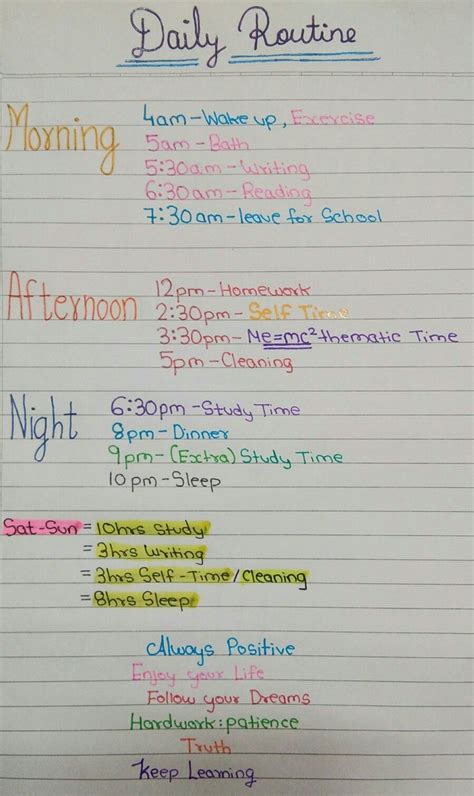 Daily Routine
Morning
4am-Wake up, Exercise
5am-Bath
5:30am-Writing
6:30am-Reading
7:30am-leave for School
Afternoon
12pm-Homework
2:30pm-Self Time
3:30pm-Me=mc²thematic Time
5pm-Cleaning
Night
6:30pm-Study Time
8pm-Dinner
9pm-(Extra) Study Time
10pm-Sleep
Sat-Sun = 10hrs Study
= 3hrs Writing
= 3hrs Self-Time/Cleaning
= 8hrs Sleep
Always Positive
Enjoy your Life
Follow your Dreams
Hardwork:patience
Truth
Keep Learning